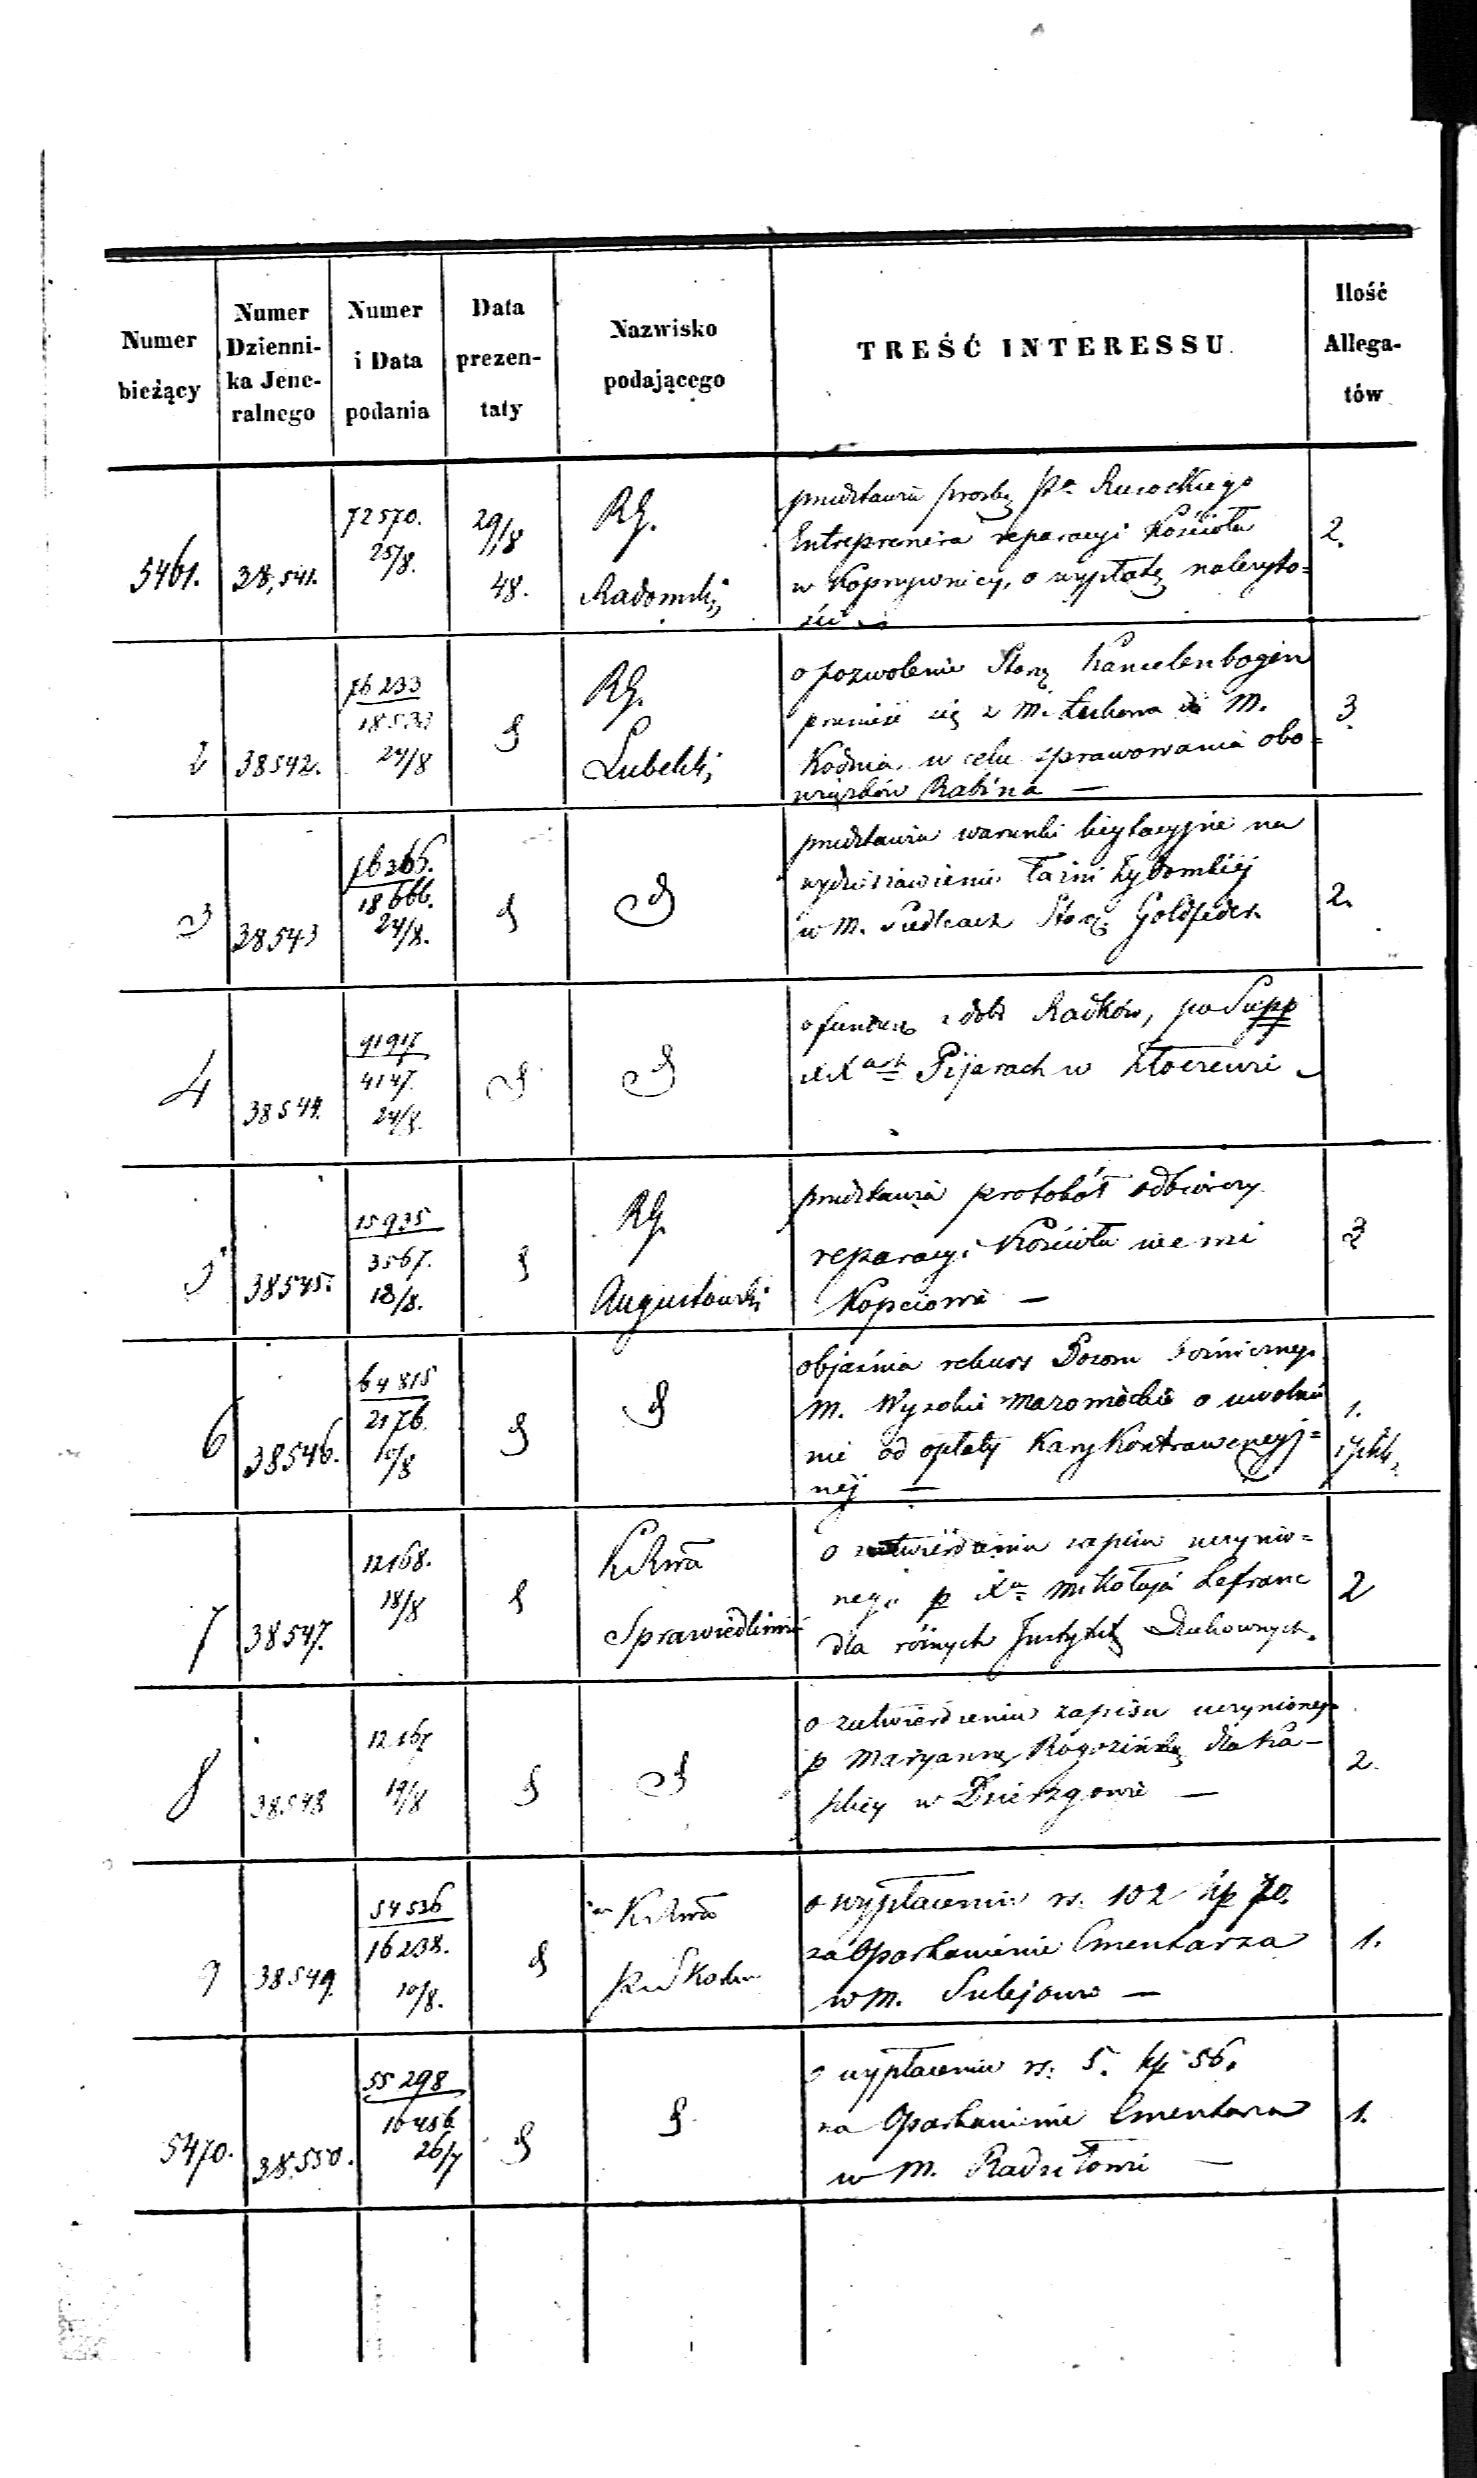 Numer bieżący
Numer Dzienni-
ka Jene-
ralnego
Numer i Data podania
Data prezen-
taty
Nazwisko podającego
TREŚĆ INTERESSU
Ilość Allega-
tów
5461.
38,541.
72570.
25/8.
29/8
48.
RG.
Radomski
przedstawia prośbę Pa Rusockiego
Entreprenera reparacyi Kościoła
w Koprzywnicy, o wypłatę należyto=
ści
2.
2
38542.
76233
18533
24/8
RG.
Lubelski
o pozwolenie Stars Kancelenbogen
przenieść się z M. Łukowa do M.
Kodnia, w celu sprawowania obo=
wiązków Rabina —
3.
3
38543
76365.
18666.
24/8.
przedstawia warunki licytacyjne na
wydzierżawienie Łaźni Żydowskiej
w M. Siedlcach Goldfeder
2.
4
38544.
91917
4147.
24/8.
o fundusz z dóbr Radków, po Supp
XXach Pijarach w
5
38545.
15935
3567.
18/8.
RG.
Augustowski
przedstawia protokół odbiorczy
reparacyi Kościoła we wsi
Kopciowie —
3
6
38546.
64815
2176.
10/8
objaśnia rekurs Dozoru bóżniczego
M. Wysokie Mazowieckie o uwolnie
nie od opłaty Kary Kontrawencyj=
nej —
1.
7
38547.
12168.
18/8
K Rwa
Sprawiedliwości
o zatwierdzenie zapisu uczynio=
nego p Xa Mikołaja Lefranc
dla różnych Instytut Duchownych.
2
8
38548
12167
19/8
o zatwierdzenie zapisu uczynionego
p Maryannę Rogozińską dla Ka—
plicy w Dzierzgowie —
2.
9
38549
54536
16238.
10/8.
K Rwa
Skarbu
o wypłacenie rs. 102 kp 70.
za Oparkanienie Cmentarza
w M. Sulejowie —
1.
5470.
38,550.
55298
16456
26/7
o wypłacenie rs. 5. kp 56.
za Oparkanienie Cmentarza
w M. Radziłowie —
1.